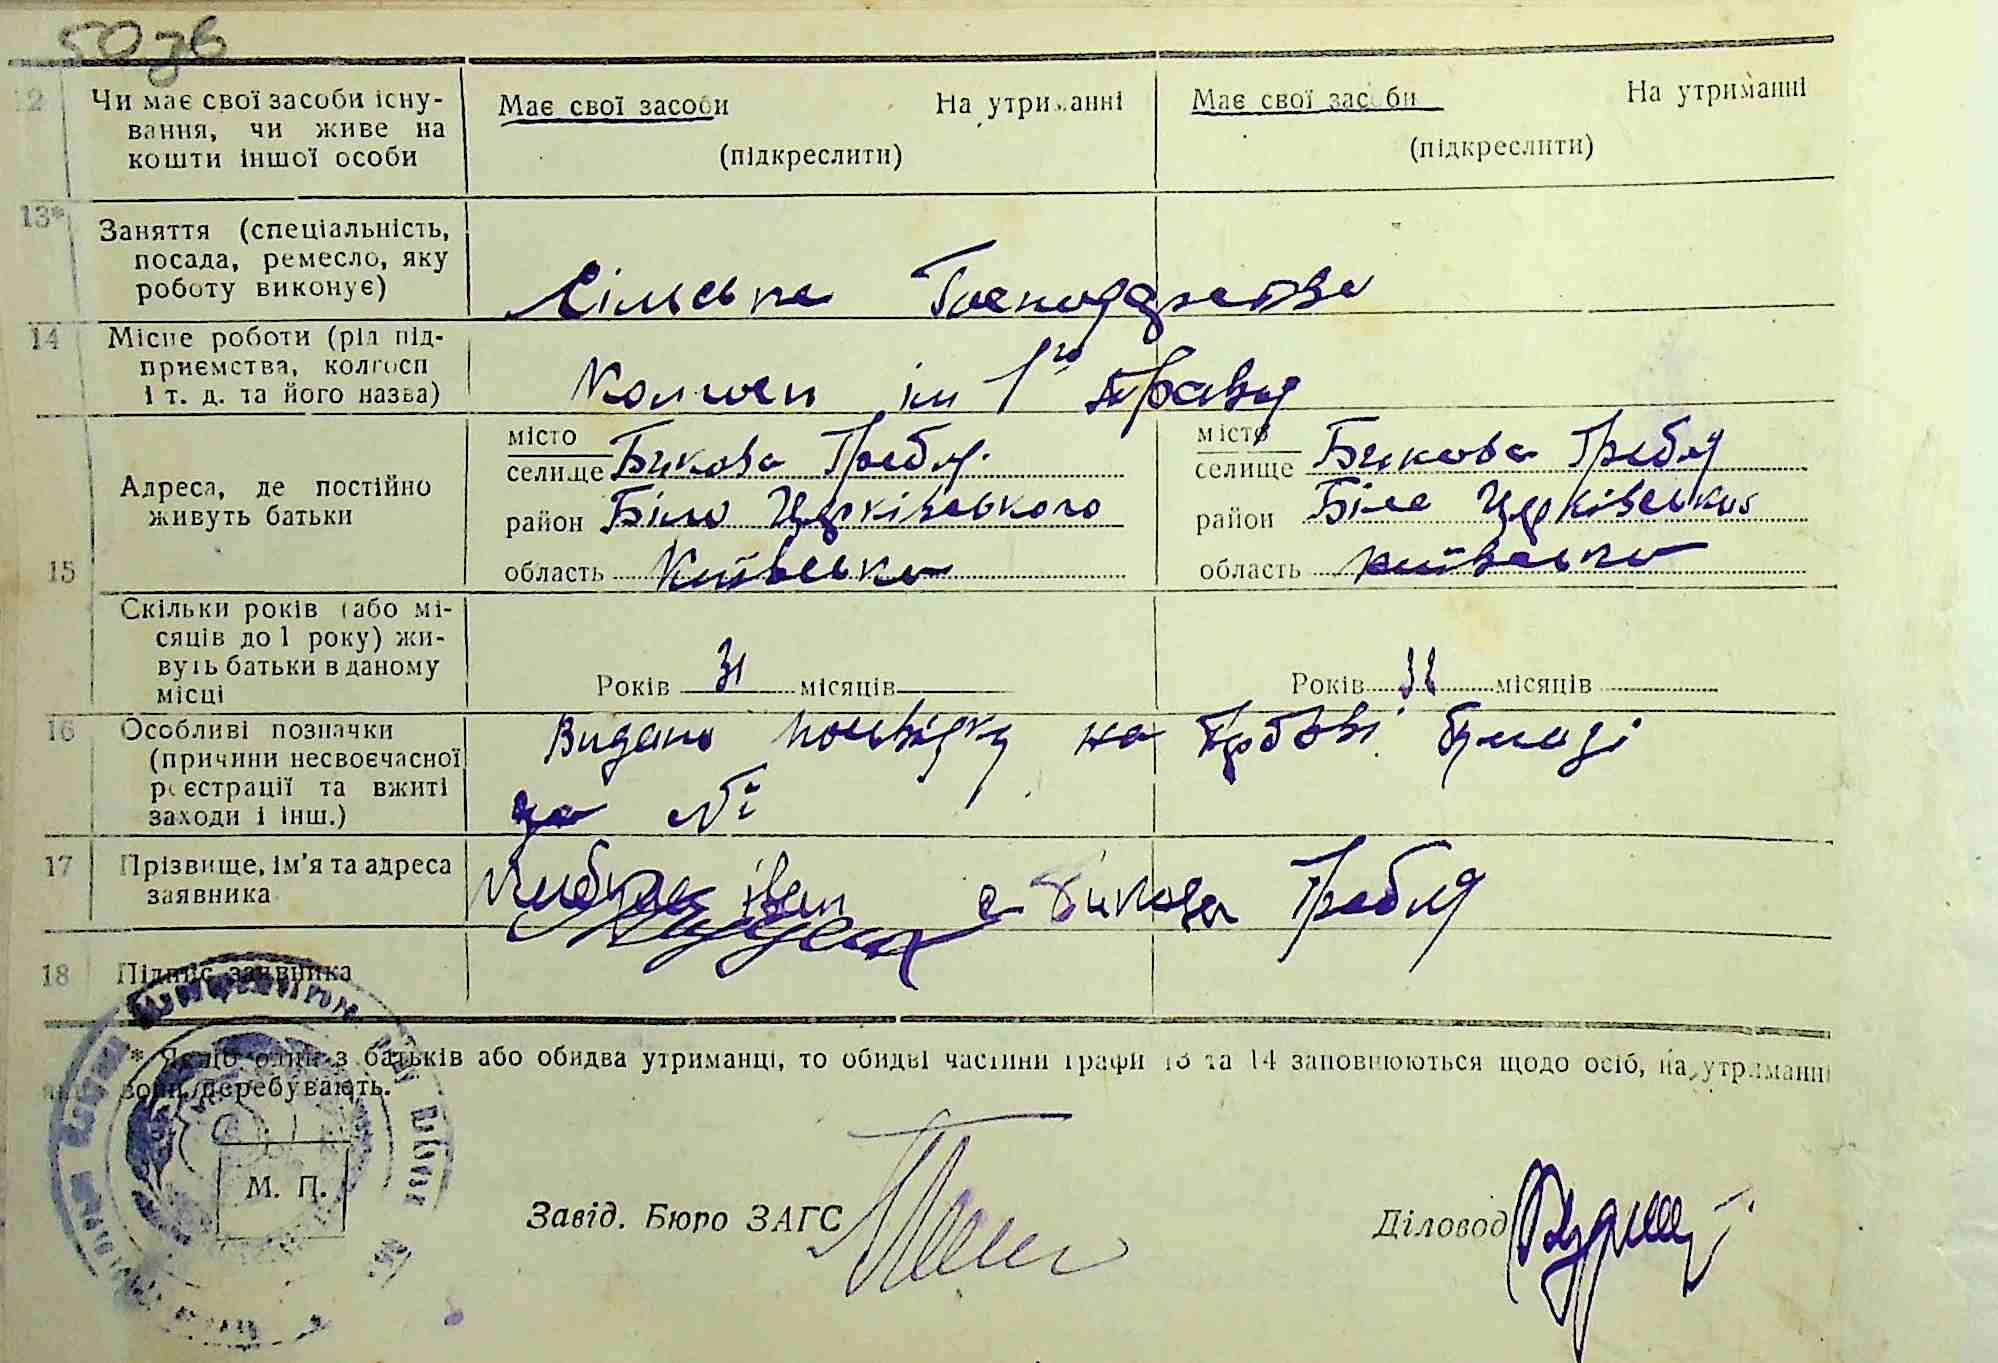 50зв
12 Чи має свої засоби існу-
вання, чи живе на
кошти іншої особи
Має свої засоби На утриманні
(підкреслити)
Має свої засоби На утриманні
(підкреслити)
13* Заняття (спеціальність,
посада, ремесло, яку
роботу виконує)
Сільське Господарство
14 Місце роботи (рід під-
приємства, колгосп
і т. д. та його назва)
Колгосп ім 1го Травня
15 Адреса, де постійно
живуть батьки
місто
селище Бикова Гребля
район Біло Церківського
область Київська
місто
селище Бикова Гребля
район Біло Церківського
область Київська
Скільки років (або мі-
сяців до 1 року) жи-
вуть батьки в даному
місці
Років 31 місяців
Років місяців
16 Особливі позначки
(причини несвоєчасної
реєстрації та вжиті
заходи і інш.)
Видано посвідку на гербові бумазі
за №
17 Прізвище, ім'я та адреса
заявника
Іван с Бикова Гребля
18 Підпис заявника
* Якщо один з батьків або обидва утриманці, то обидві частини графи 13 та 14 заповнюються щодо осіб, на утриманні
яких вони перебувають.
М. П.
Завід. Бюро ЗАГС
Діловод